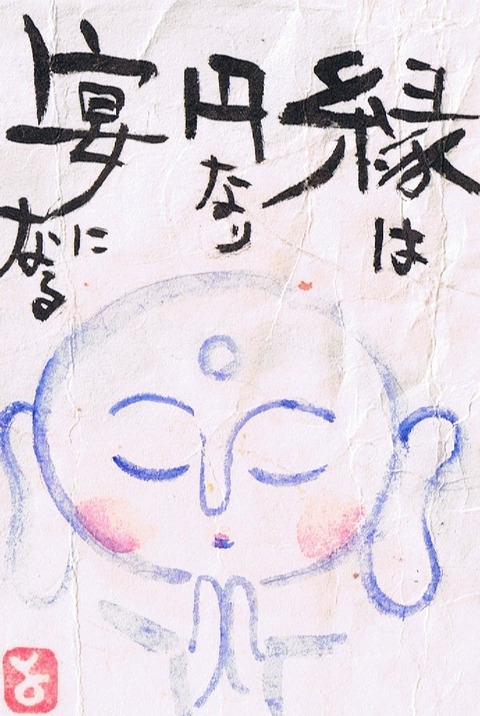 縁は
円なり
宴になる
と